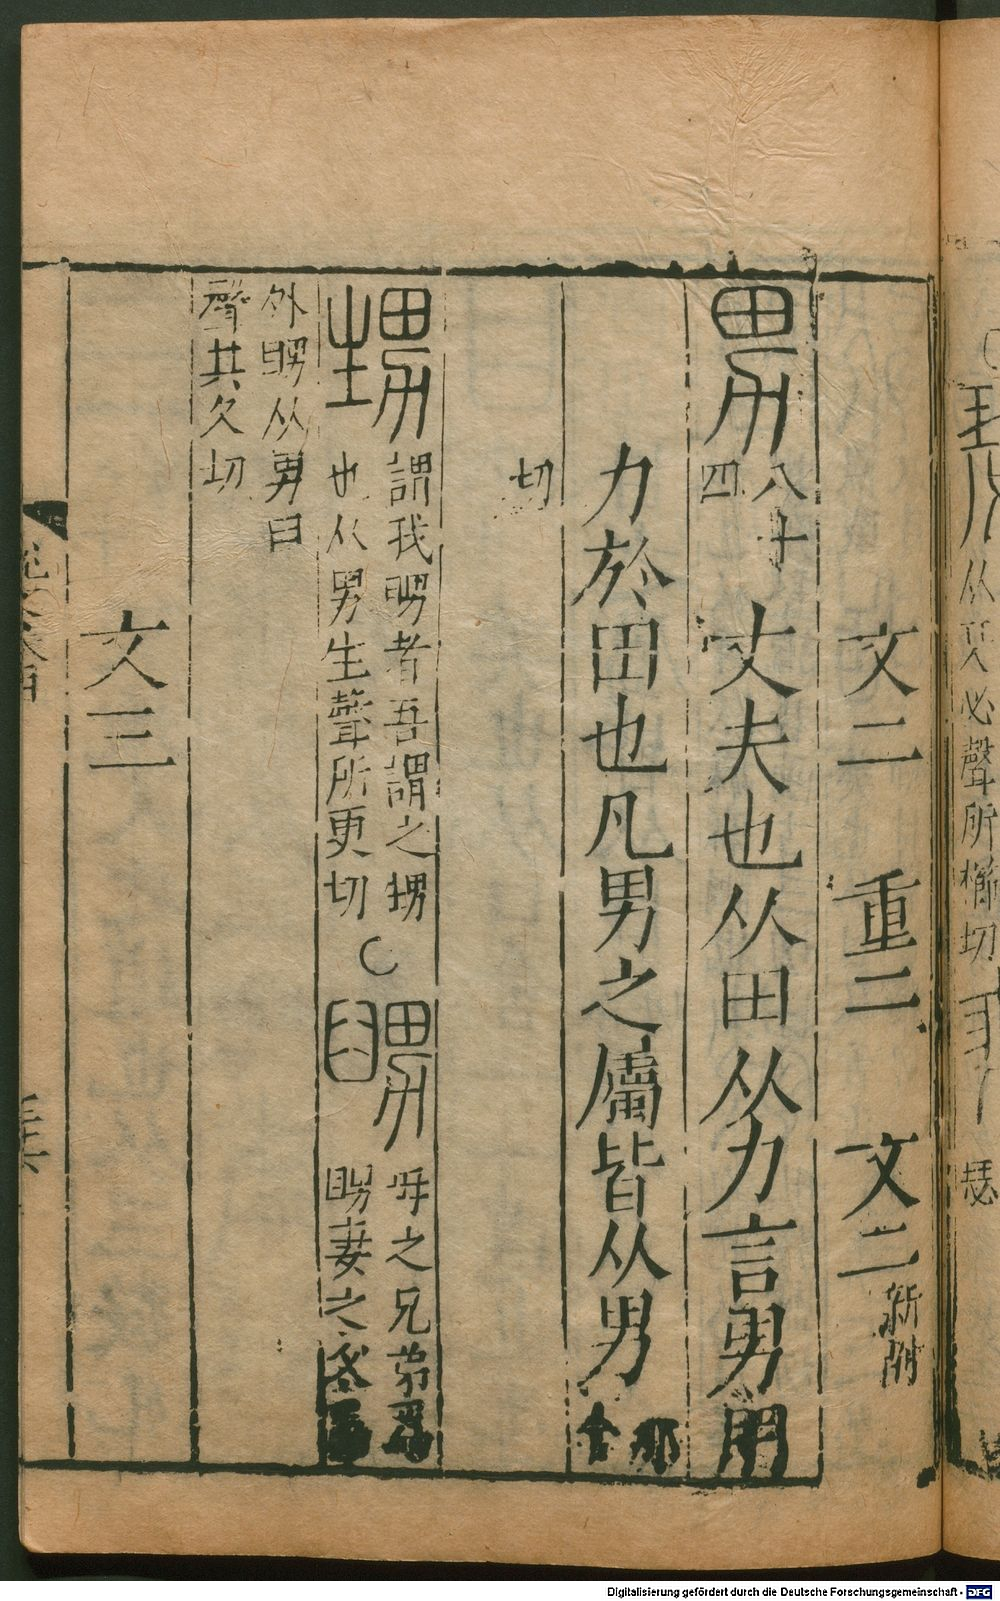 从珡必聲所櫛切
瑟
文二 重二 文二新附
男 八十四 丈夫也从田从力言男用
力於田也凡男之屬皆从男 那
切
甥 謂我舅者吾謂之甥也从男生聲所更切 舅 母之兄弟爲舅妻之父爲
外舅从男臼
聲共久切
文三